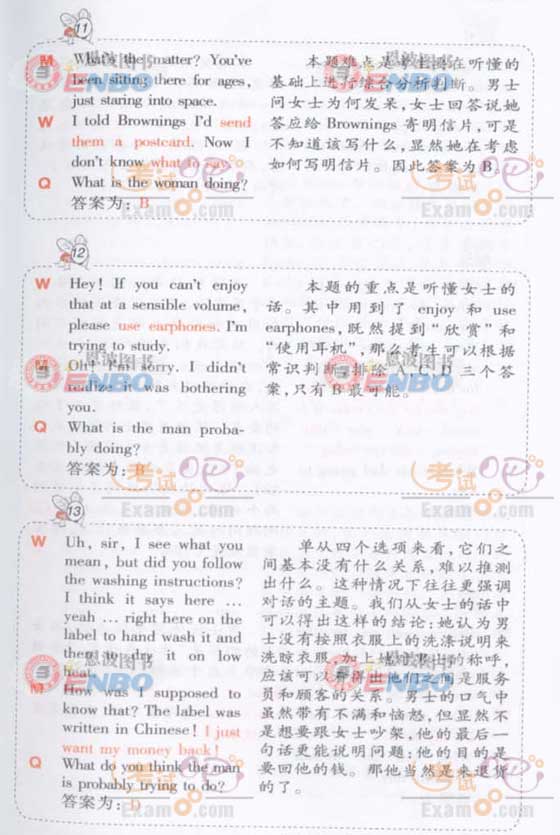 11
M What's the matter? You've
been sitting there for ages,
just staring into space.
W I told Brownings I'd send
them a postcard. Now I
don't know what to say.
Q What is the woman doing?
答案为：B
本题难点是考生需在听懂的
基础上进行综合分析判断。男士
问女士为何发呆，女士回答说她
答应给 Brownings 寄明信片，可是
不知道该写什么，显然她在考虑
如何写明信片。因此答案为 B。
恩波图书
ENBO
恩波图书
ENBO
考试吧
Exam8.com
考试吧
Exam8.com
12
W Hey! If you can't enjoy
that at a sensible volume,
please use earphones. I'm
trying to study.
M Oh! I'm sorry. I didn't
realize it was bothering
you.
Q What is the man proba-
bly doing?
答案为：B
本题的重点是听懂女士的
话。其中用到了 enjoy 和 use
earphones，既然提到“欣赏”和
“使用耳机”，那么考生可以根据
常识判断，排除 A、C、D 三个答
案，只有 B 最可能。
恩波图书
ENBO
恩波图书
ENBO
考试吧
Exam8.com
考试吧
Exam8.com
13
W Uh, sir, I see what you
mean, but did you follow
the washing instructions?
I think it says here ...
yeah ... right here on the
label to hand wash it and
then to dry it on low
heat.
M How was I supposed to
know that? The label was
written in Chinese! I just
want my money back!
Q What do you think the man
is probably trying to do?
答案为：D
单从四个选项来看，它们之
间基本没有什么关系，难以推测
出什么。这种情况下往往更强调
对话的主题。我们从女士的话中
可以得出这样的结论：她认为男
士没有按照衣服上的洗涤说明来
洗晾衣服，加上她对男士的称呼，
应该可以看得出他们之间是服务
员和顾客的关系。男士的口气中
虽然带有不满和恼怒，但显然不
是想要跟女士吵架，他的最后一
句话更能说明问题：他的目的是
要回他的钱。那他当然是来退货
的了。
恩波图书
ENBO
恩波图书
ENBO
考试吧
Exam8.com
考试吧
Exam8.com